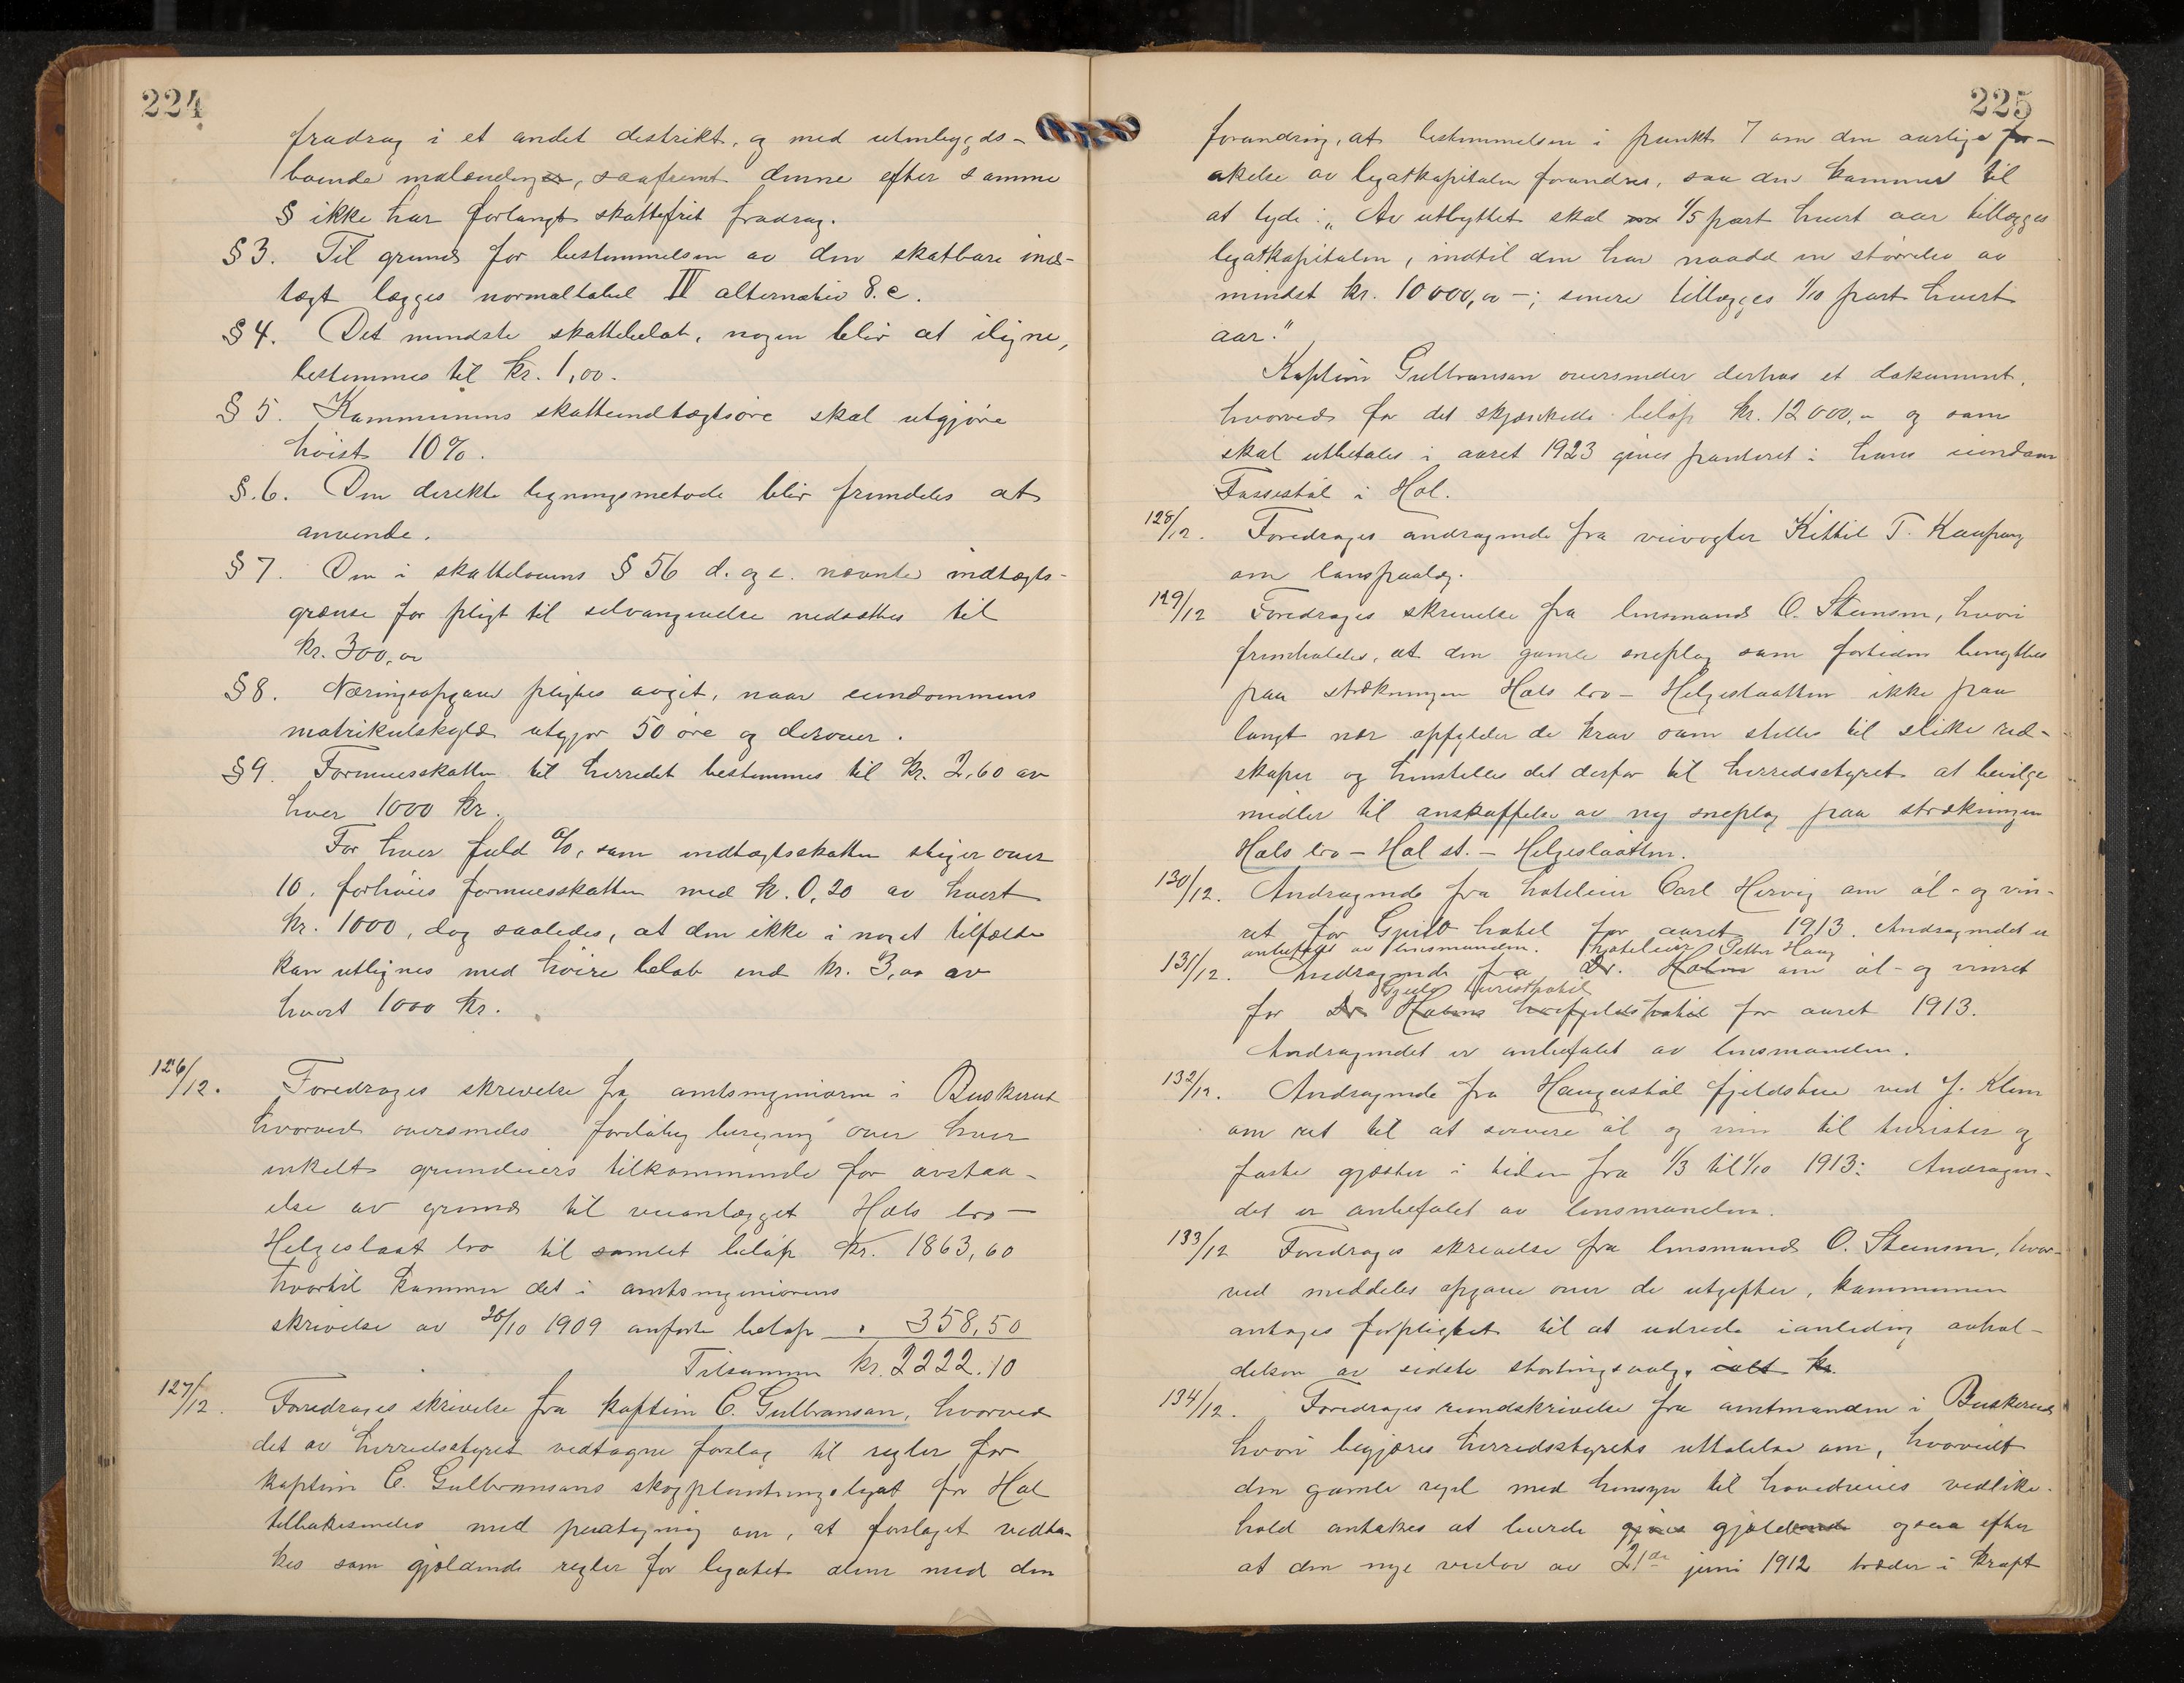 224
fradrag i et andet distrikt, og med utenbygds-
boende , saafremt denne efter samme
§ ikke har forlangt skattefrit fradrag.
§ 3. Til grund for bestemmelsen av den skatbare ind-
tægt lægges normaltabel IV alternativ 8.c.
§ 4. Det mindste skattebeløb, nogen blir at iligne,
bestemmes til kr. 1,00.
§ 5. Kommunens skatteindtægtsøre skal utgjøre
høist 10%.
§.6. Den direkte ligningsmetode blir fremdeles at
anvende.
§ 7. Den i skattelovens § 56 d. og e. nævnte indtægts-
grænse for pligt til selvangivelse nedsættes til
kr. 300,00
§ 8. Næringsopgave pligtes avgit, naar eiendommens
matrikulskyld utgjør 50 øre og derover.
§ 9. Formuesskatten til herredet bestemmes til kr. 2,60 av
hver 1000 kr.
For hver fuld %, som indtægtsskatten stiger over
10, forhøies formuesskatten med kr. 0,20 av hvert
kr. 1000, dog saaledes, at den ikke i noget tilfælde
kan utlignes med høire beløb end kr. 3,00 av
hvert 1000 kr.
126/12. Foredrages skrivelse fra amtsingeniøren i Buskerud
hvorved oversendes foreløbig beregning over hver
enkelt grundeiers tilkommende for avstaa-
else av grund til veianlægget Hols bro —
Helgeslaat bro til samlet beløp kr. 1863,60
hvortil kommer det i amtsingeniørens
skrivelse av 26/10 1909 anførte beløp " 358,50
Tilsammen kr. 2222.10
127/12. Foredrages skrivelse fra kaptein C. Gulbransen, hvorved
det av herredsstyret vedtagne forslag til regler for
kaptein C. Gulbransens skogplantningslegat for Hol
tilbakesendes med paategning om, at forslaget vedta-
kes som gjældende regler for legatet alene med den
225
forandring, at bestemmelsen i punkt 7 om den aarlige for-
økelse av legatkapitalen forandres, saa den kommer til
at lyde: „Av utbyttet skal 1/5 part hvert aar tillægges
legatkapitalen, indtil den har naadd en størrelse av
mindst kr. 10000,00 —; senere tillægges 1/10 part hvert
aar."
Kaptein Gulbransen oversender derhos et dokument,
hvorved for det skjænkede beløp kr. 12000,00 og som
skal utbetales i aaret 1923 gives panteret i hans eiendom
i Hol.
128/12. Foredrages andragende fra veivogter Kittil T. Kaupang
om lønspaalæg.
129/12 Foredrages skrivelse fra lensmand O. Steinsen, hvori
fremholdes, at den gamle sneplog som fortiden benyttes
paa strækningen Hols bro — Helgeslaatten ikke paa
langt nær opfylder de krav som stilles til slike red-
skaper og henstilles det derfor til herredsstyret at bevilge
midler til anskaffelse av ny sneplog paa strækningen
Hols bro — Hol st. — Helgeslaatten.
130/12. Andragende fra hoteleier Carl Hervig om øl- og vin-
ret for hotel for aaret 1913. Andragendet er
anbefalet av lensmanden.
131/12. Andragende fra Dr. Holm hoteleier Petter Haug om øl- og vinret
for Dr. Holms høifjeldshotel Gjeilo turisthotel for aaret 1913.
Andragendet er anbefalet av lensmanden.
132/12. Andragende fra Haugastøl fjeldstue ved J. Klem
om ret til at servere øl og vin til turister og
faste gjæster i tiden fra 1/3 til 1/10 1913: Andragen-
det er anbefalet av lensmanden.
133/12 Foredrages skrivelse fra lensmand O. Steinsen, hvor-
ved meddeles opgave over de utgifter, kommunen
antages forpligtet til at udrede i anledning avhol-
delsen av sidste stortingsvalg, ialt kr.
134/12. Foredrages rundskrivelse fra amtmanden i Buskerud
hvori begjæres herredsstyrets uttalelse om, hvorvidt
den gamle regel med hensyn til hovedveies vedlike-
hold antakes at burde gjøres gjældende ogsaa efter
at den nye veilov av 21de juni 1912 træder i kraft